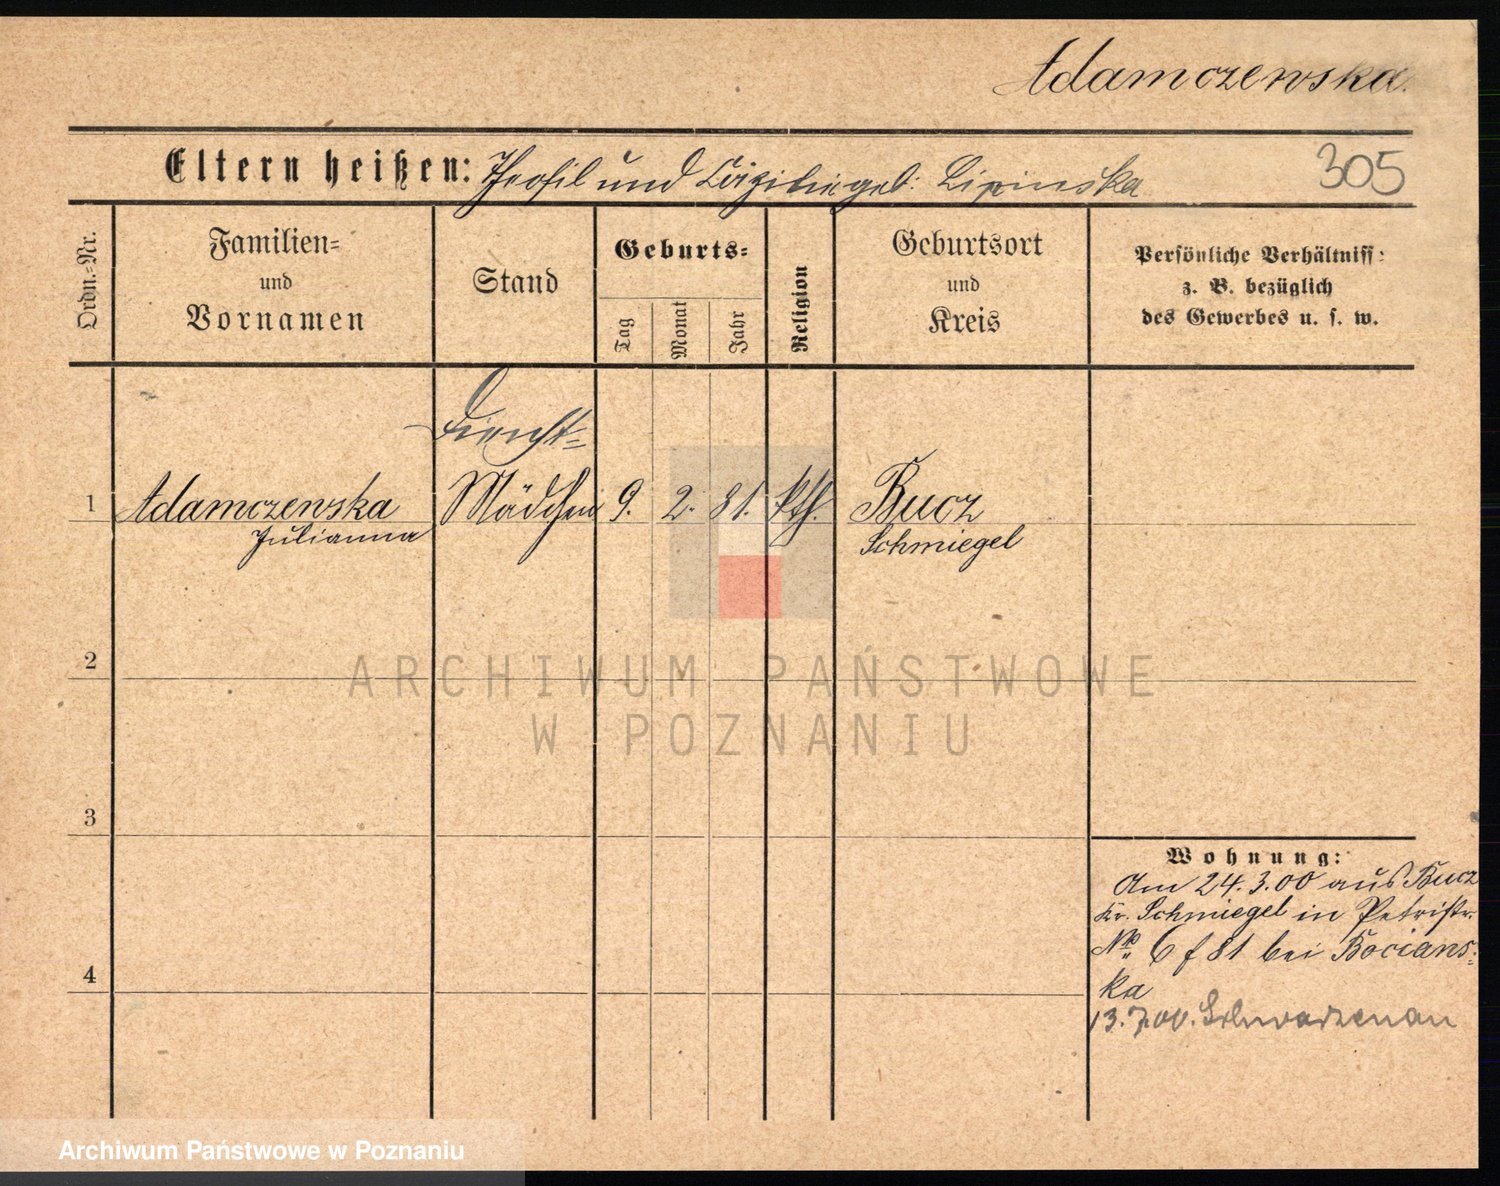 Adamczewska.
Eltern heißen: Theofil und Cäzilie geb: Lipinska
305
Ordn.=Nr.
Familien=
und
Vornamen
Stand
Geburts=
Tag
Monat
Jahr
Religion
Geburtsort
und
Kreis
Persönliche Verhältniss:
z. B. bezüglich
des Gewerbes u. s. w.
Dienst=
1 Adamczewska Mädchen 9. 2. 81. kth. Bucz
Julianna Schmiegel
2
ARCHIWUM PAŃSTWOWE
W POZNANIU
3
Wohnung:
Am 24.3.00 aus Bucz
Kr. Schmiegel in Petristr.
No. 6 f 81 bei Bocians=
4
ka
13.7.00. Schwarzenau
Archiwum Państwowe w Poznaniu